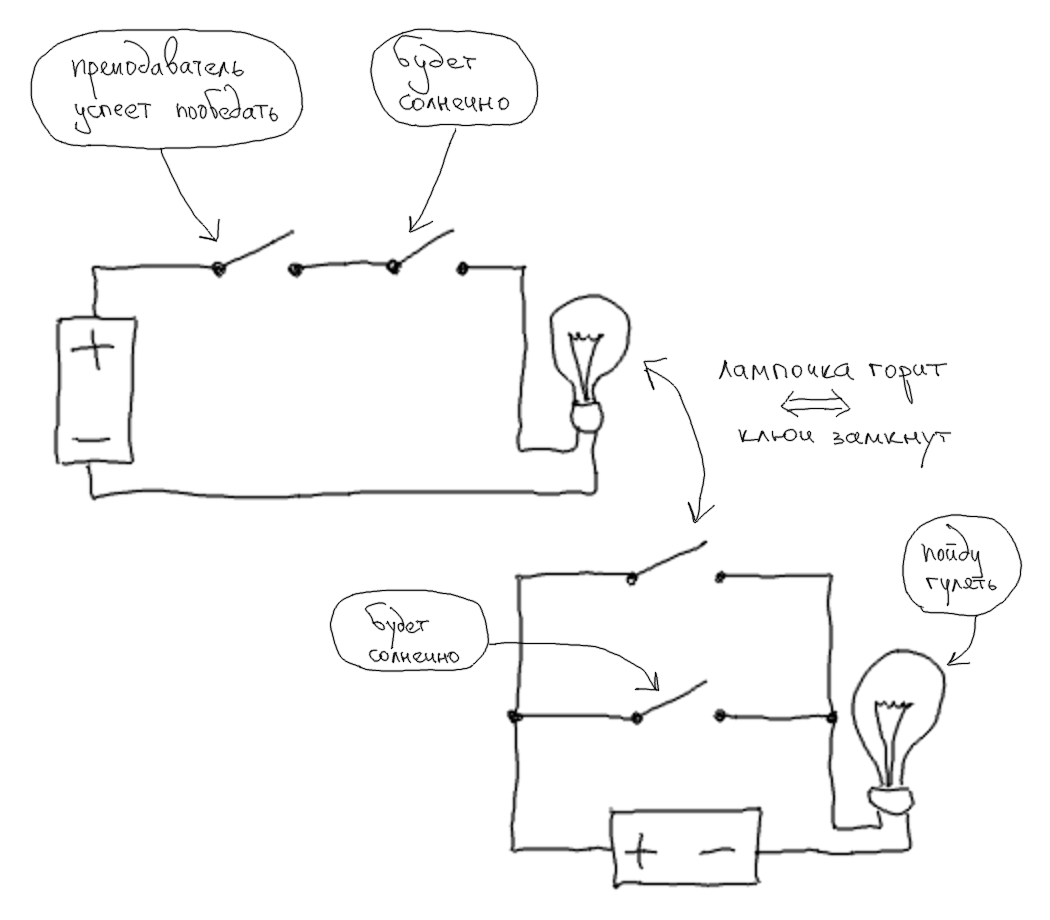 преподаватель
успеет пообедать
будет
солнечно
+
−
лампочка горит
⇔
ключ замкнут
пойду
гулять
будет
солнечно
+ −